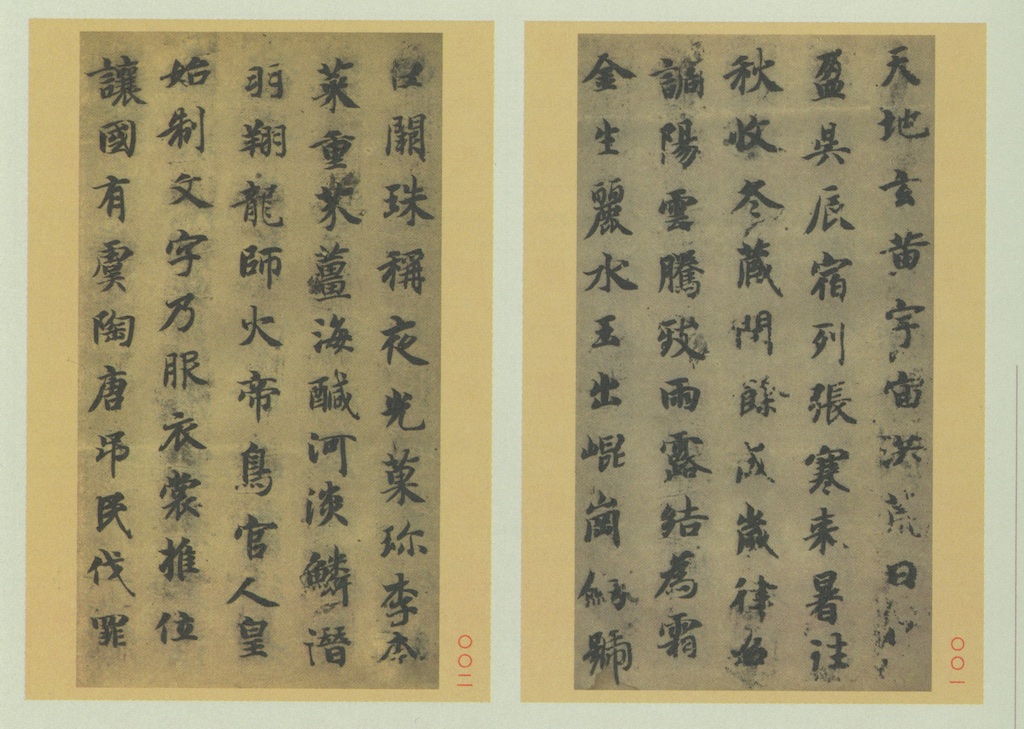 天地玄黄宇宙洪荒日
盈昃辰宿列張寒来暑往
秋收冬藏閏餘成歲律召
調陽雲騰致雨露結為霜
金生麗水玉出崐崗劒號
〇〇一
巨闕珠稱夜光菓珎李柰
菜重芥薑海醎河淡鱗潛
羽翔龍師火帝鳥官人皇
始制文字乃服衣裳推位
讓國有虞陶唐吊民伐罪
〇〇二